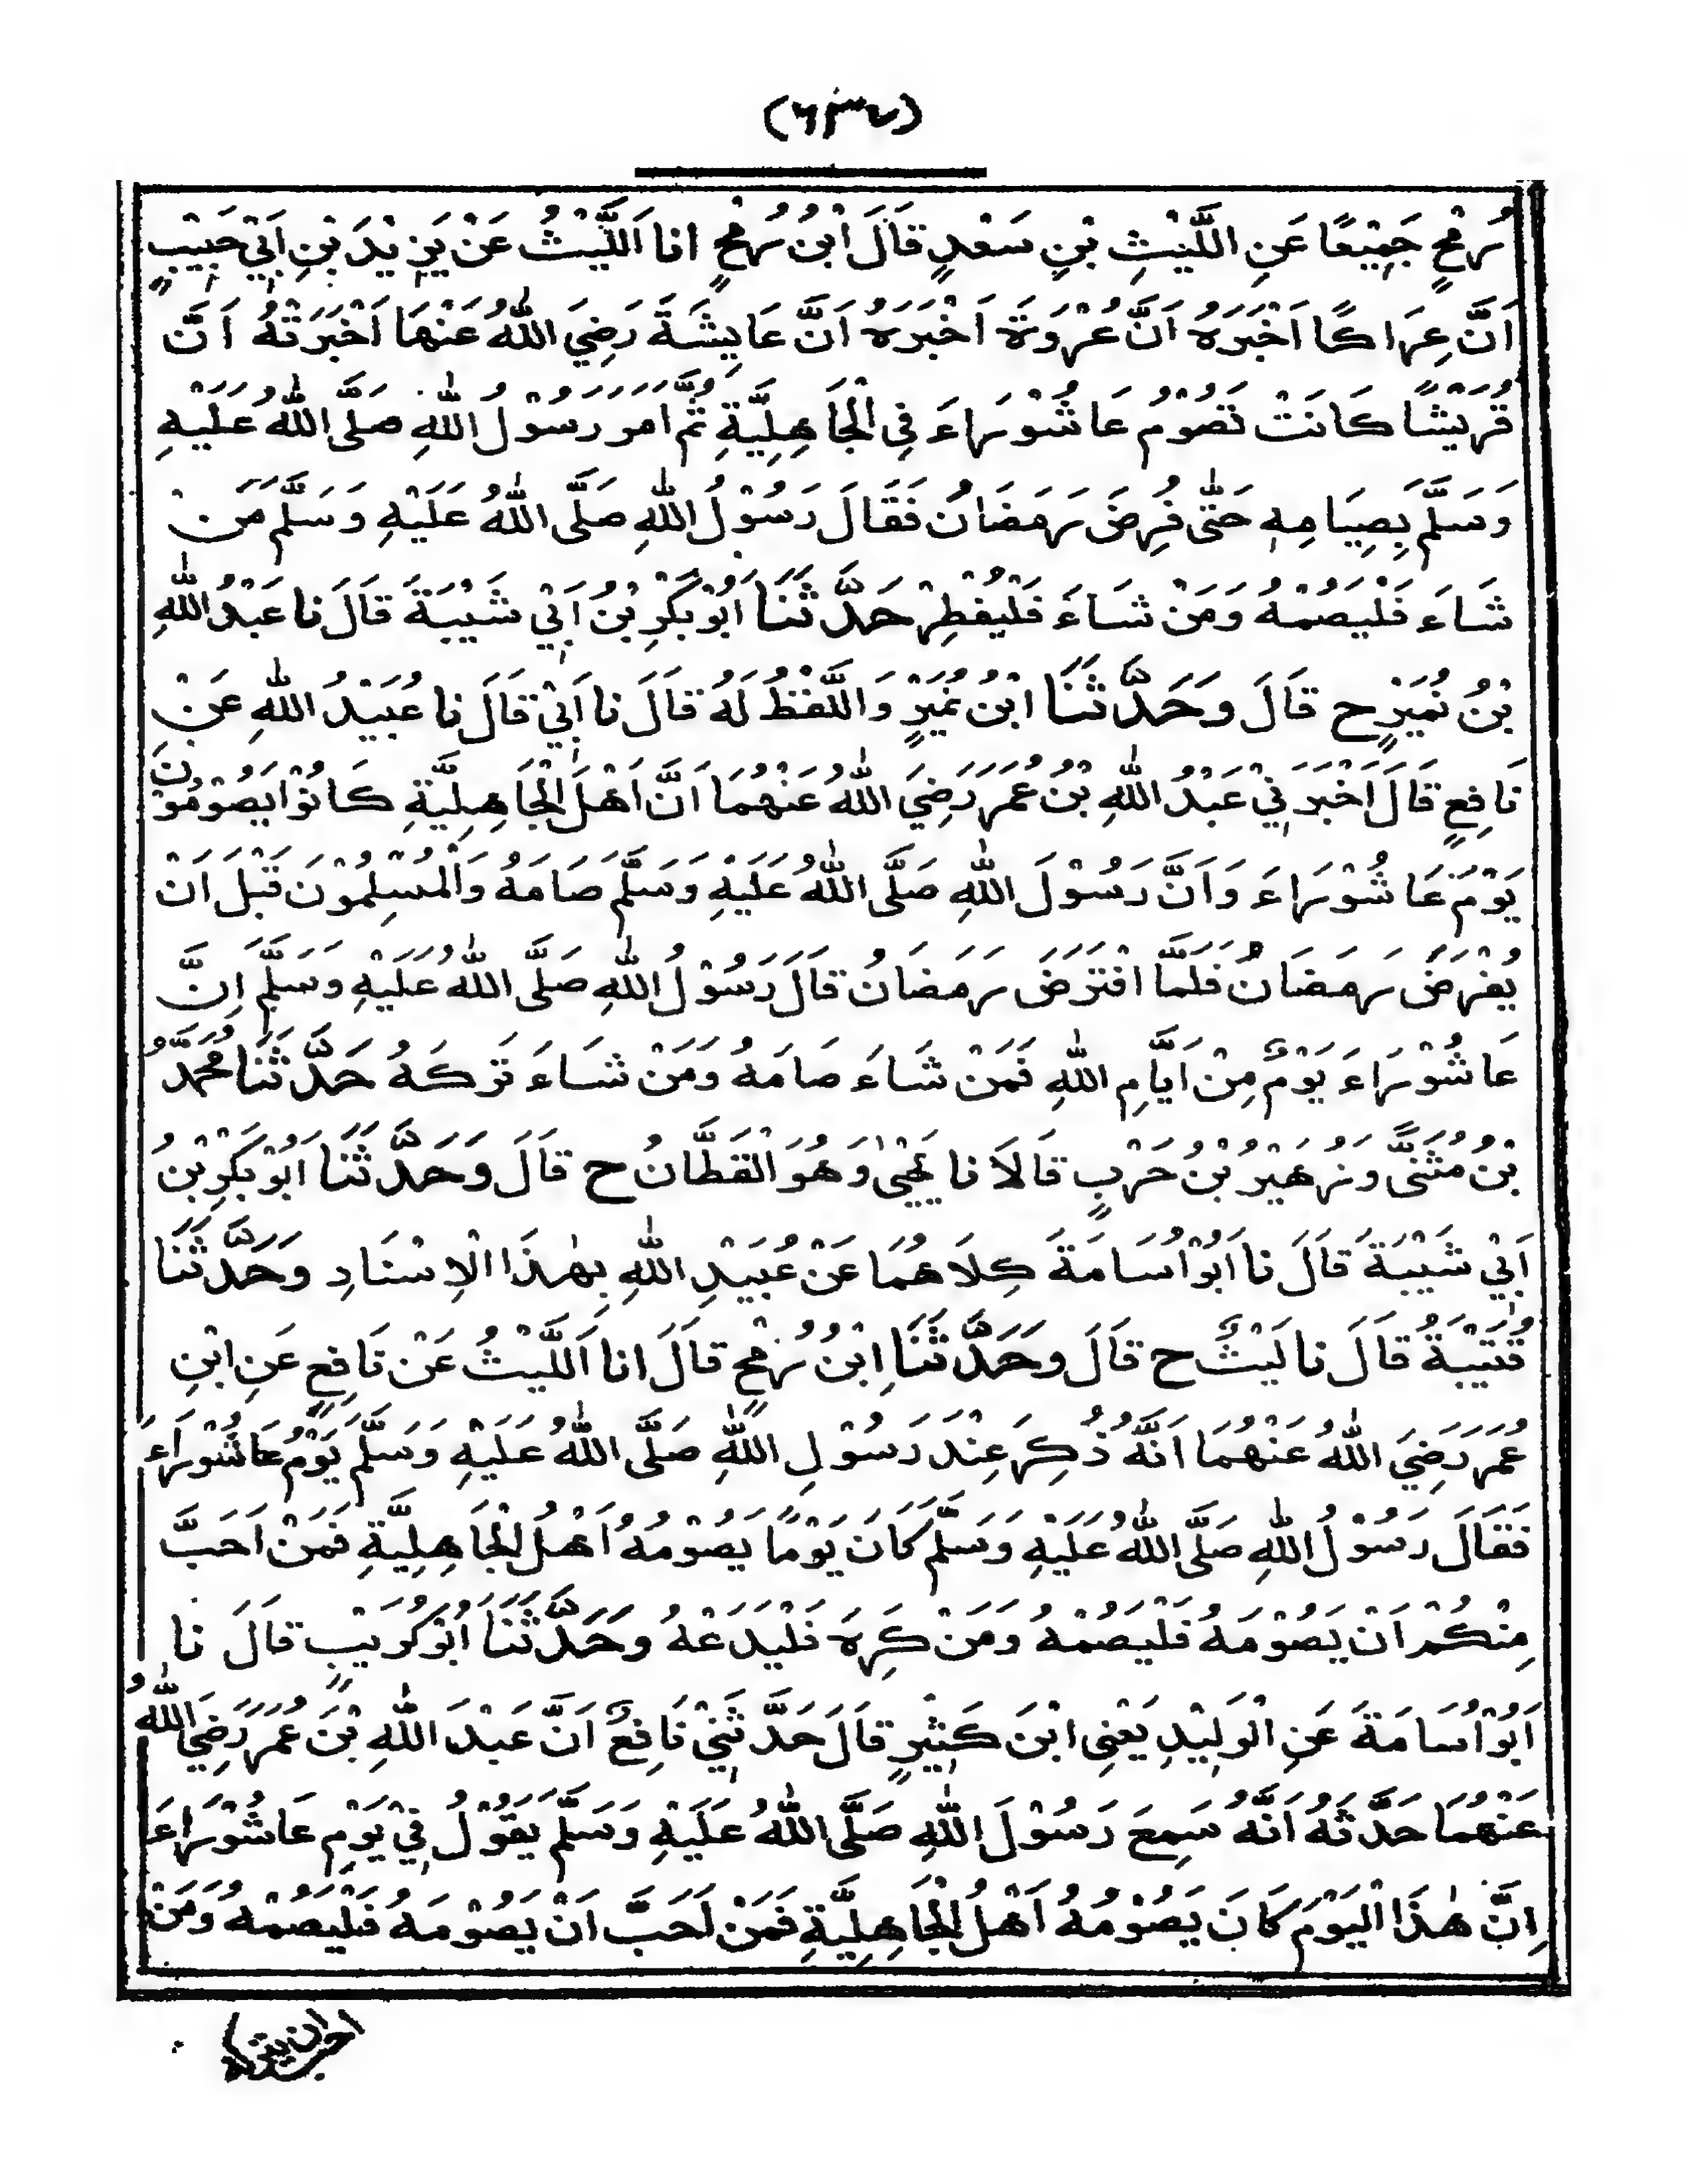 (٦٣٧)
رُمْحٍ جَمِيْعًا عَنِ اللَّيْثِ بْنِ سَعْدٍ قَالَ ابْنُ رُمْحٍ انا اَللَّيْثُ عَنْ يَزِيْدَ بْنِ اَبِيْ حَبِيْبٍ
اَنَّ عِرَاكًا اَخْبَرَهُ اَنَّ عُرْوَةَ اَخْبَرَهُ اَنَّ عَايِشَةَ رَضِيَ اللّٰهُ عَنْهَا اَخْبَرَتْهُ اَنَّ
قُرَيْشًا كَانَتْ تَصُوْمُ عَاشُوْرَاءَ فِي الْجَاهِلِيَّةِ ثُمَّ اَمَرَ رَسُوْلُ اللّٰهِ صَلَّى اللّٰهُ عَلَيْهِ
وَسَلَّمَ بِصِيَامِهٖ حَتّٰى فُرِضَ رَمَضَانُ فَقَالَ رَسُوْلُ اللّٰهِ صَلَّى اللّٰهُ عَلَيْهِ وَسَلَّمَ مَنْ
شَاءَ فَلْيَصُمْهُ وَمَنْ شَاءَ فَلْيُفْطِرْ حَدَّثَنَا اَبُوْبَكْرِ بْنُ اَبِيْ شَيْبَةَ قَالَ نا عَبْدُ اللّٰهِ
بْنُ نُمَيْرٍ ح قَالَ وَحَدَّثَنَا ابْنُ نُمَيْرٍ وَاللَّفْظُ لَهُ قَالَ نا اَبِيْ قَالَ نا عُبَيْدُ اللّٰهِ عَنْ
نَافِعٍ قَالَ اَخْبَرَنِيْ عَبْدُ اللّٰهِ بْنُ عُمَرَ رَضِيَ اللّٰهُ عَنْهُمَا اَنَّ اَهْلَ الْجَاهِلِيَّةِ كَانُوْا يَصُوْمُوْنَ
يَوْمَ عَاشُوْرَاءَ وَاَنَّ رَسُوْلَ اللّٰهِ صَلَّى اللّٰهُ عَلَيْهِ وَسَلَّمَ صَامَهُ وَالْمُسْلِمُوْنَ قَبْلَ اَنْ
يُفْرَضَ رَمَضَانُ فَلَمَّا افْتُرِضَ رَمَضَانُ قَالَ رَسُوْلُ اللّٰهِ صَلَّى اللّٰهُ عَلَيْهِ وَسَلَّمَ اِنَّ
عَاشُوْرَاءَ يَوْمٌ مِنْ اَيَّامِ اللّٰهِ فَمَنْ شَاءَ صَامَهُ وَمَنْ شَاءَ تَرَكَهُ حَدَّثَنَا مُحَمَّدُ
بْنُ مُثَنًّى وَزُهَيْرُ بْنُ حَرْبٍ قَالَا نا يَحْيٰى وَهُوَ الْقَطَّانُ ح قَالَ وَحَدَّثَنَا اَبُوْبَكْرِ بْنُ
اَبِيْ شَيْبَةَ قَالَ نا اَبُوْ اُسَامَةَ كِلَاهُمَا عَنْ عُبَيْدِ اللّٰهِ بِهٰذَا الْاِسْنَادِ وَحَدَّثَنَا
قُتَيْبَةُ قَالَ نا لَيْثٌ ح قَالَ وَحَدَّثَنَا اِبْنُ رُمْحٍ قَالَ انا اَللَّيْثُ عَنْ نَافِعٍ عَنِ ابْنِ
عُمَرَ رَضِيَ اللّٰهُ عَنْهُمَا اَنَّهُ ذُكِرَ عِنْدَ رَسُوْلِ اللّٰهِ صَلَّى اللّٰهُ عَلَيْهِ وَسَلَّمَ يَوْمُ عَاشُوْرَاءَ
فَقَالَ رَسُوْلُ اللّٰهِ صَلَّى اللّٰهُ عَلَيْهِ وَسَلَّمَ كَانَ يَوْمًا يَصُوْمُهُ اَهْلُ الْجَاهِلِيَّةِ فَمَنْ اَحَبَّ
مِنْكُمْ اَنْ يَصُوْمَهُ فَلْيَصُمْهُ وَمَنْ كَرِهَ فَلْيَدَعْهُ وَحَدَّثَنَا اَبُوْ كُرَيْبٍ قَالَ نا
اَبُوْ اُسَامَةَ عَنِ الْوَلِيْدِ يَعْنِى ابْنَ كَثِيْرٍ قَالَ حَدَّثَنِيْ نَافِعٌ اَنَّ عَبْدَ اللّٰهِ بْنَ عُمَرَ رَضِيَ اللّٰهُ
عَنْهُمَا حَدَّثَهُ اَنَّهُ سَمِعَ رَسُوْلَ اللّٰهِ صَلَّى اللّٰهُ عَلَيْهِ وَسَلَّمَ يَقُوْلُ فِيْ يَوْمِ عَاشُوْرَاءَ
اِنَّ هٰذَا الْيَوْمَ كَانَ يَصُوْمُهُ اَهْلُ الْجَاهِلِيَّةِ فَمَنْ اَحَبَّ اَنْ يَصُوْمَهُ فَلْيَصُمْهُ وَمَنْ
احب ان يتركه